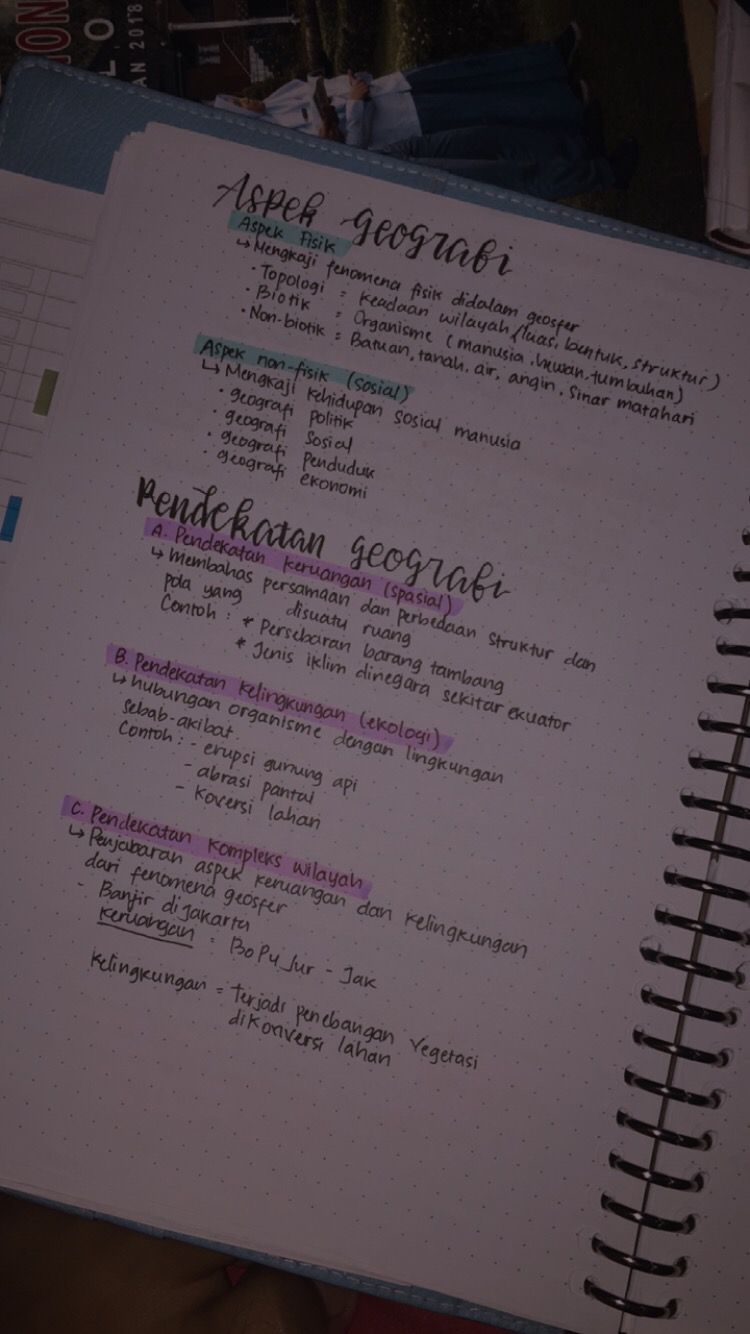 ION
LO
AN 2018
Aspek geografi
Aspek Fisik
↳ Mengkaji fenomena fisik didalam geosfer
• Topologi = Keadaan wilayah (luas, bentuk, struktur)
• Biotik = Organisme (manusia, hewan, tumbuhan)
• Non-biotik = Batuan, tanah, air, angin, sinar matahari
Aspek non-fisik (sosial)
↳ Mengkaji kehidupan sosial manusia
• geografi politik
• geografi sosial
• geografi penduduk
• geografi ekonomi
Pendekatan geografi
A. Pendekatan keruangan (spasial)
↳ Membahas persamaan dan perbedaan struktur dan
pola yang disuatu ruang
Contoh : * Persebaran barang tambang
* Jenis iklim dinegara sekitar ekuator
B. Pendekatan kelingkungan (ekologi)
↳ hubungan organisme dengan lingkungan
sebab-akibat
Contoh : - erupsi gunung api
- abrasi pantai
- koversi lahan
C. Pendekatan kompleks wilayah
↳ Penjabaran aspek keruangan dan kelingkungan
dari fenomena geosfer
- Banjir di Jakarta
keruangan = BoPuJur - Jak
kelingkungan = Terjadi penebangan vegetasi
dikonversi lahan